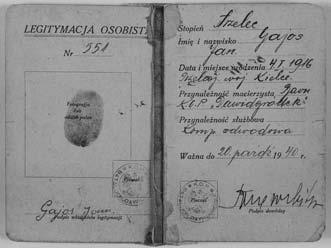 LEGITYMACJA OSOBISTA
Nr 551
Fotografja
lub
odcisk palca
Gajos Jan
Podpis właściciela legitymacji
Stopień Strzelec
Imię i nazwisko Gajos
Jan
Data i miejsce urodzenia 4 I 1916
woj Kielce
Przynależność macierzysta Baon
K.O.P. Dawidgródek
Przynależność służbowa
Komp. odwodowa
Ważna do 20 paźdz 1940 r.
Podpis dowódcy